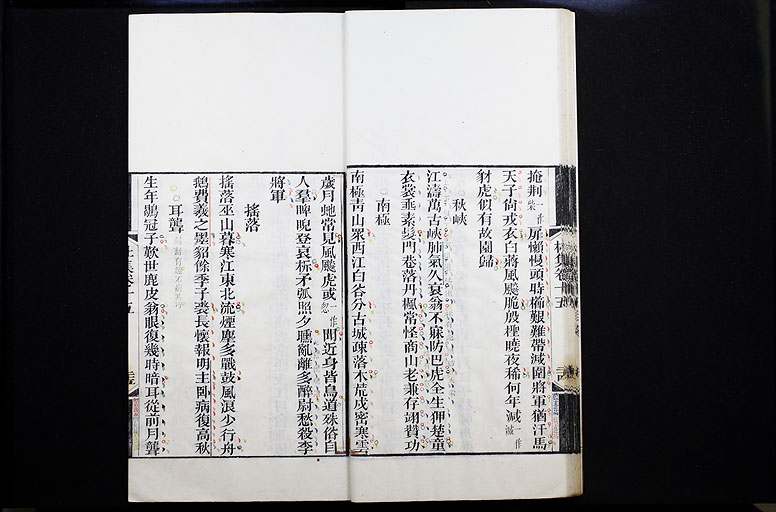 掩荊一作柴扉懶慢頭時櫛艱難帶減圍將軍猶汗馬
天子尙戎衣白蔣風飈脆殷檉曉夜稀何年減一作滅
豺虎似有故園歸
秋峽
江濤萬古峽肺氣久衰翁不寐防巴虎全生狎楚童
衣裳垂素髮門巷落丹楓常怪商山老兼存翊贊功
南極
南極靑山眾西江白谷分古城疎落木荒戍密寒雲
歲月蛇常見風飈虎或一作忽聞近身皆鳥道殊俗自
人羣睥睨登哀柝矛弧照夕曛亂離多醉尉愁殺李
將軍
搖落
搖落巫山暮寒江東北流煙塵多戰鼓風浪少行舟
鵝費羲之墨貂餘季子裘長懷報明主臥病復高秋
耳聾
生年鶡冠子歎世鹿皮翁眼復幾時暗耳從前月聾
杜集卷十五